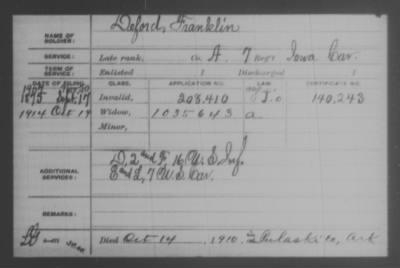 Deford, Franklin
NAME OF SOLDIER:
SERVICE: Late rank, Co. A. 7 Reg't Iowa Cav.
TERM OF SERVICE: Enlisted I Discharged I
DATE OF FILING. CLASS. APPLICATION NO. LAW. CERTIFICATE NO.
1875 Sept. 17 Invalid, 208.410 I. o 140.243
1914 Oct 19 Widow, 1035643 a.
Minor,
ADDITIONAL SERVICES: D, 2nd F, 16 U.S. Inf.
E and L, 7 U.S. Cav.
REMARKS:
Died Oct 14, 1910. Pulaski Co, Ark